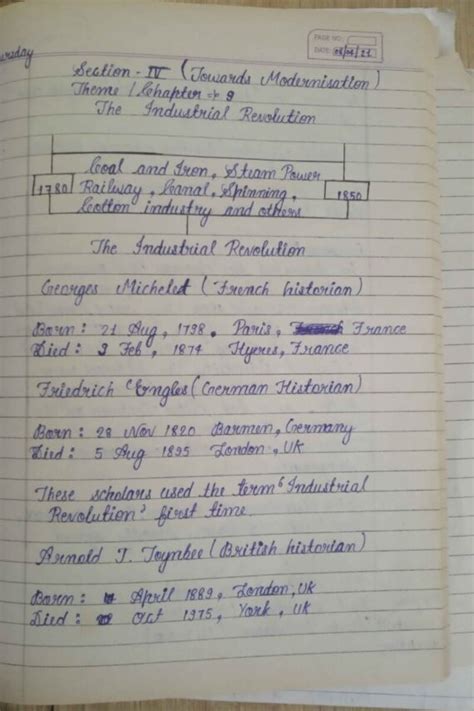 PAGE NO.:
DATE:
Section - IV (Towards Modernisation)
Theme / Chapter => 9
The Industrial Revolution
1780
Coal and Iron, Steam Power
Railway, Canal, Spinning,
Cotton industry and others
1850
The Industrial Revolution
Georges Michelet (French historian)
Born : 21 Aug, 1798, Paris, France
Died : 9 Feb, 1874 Hyeres, France
Friedrich Erngles (German Historian)
Born : 28 Nov 1820 Barmen, Germany
Died : 5 Aug 1895 London, UK
These scholars used the term 'Industrial
Revolution' first time.
Arnold J. Toynbee (British historian)
Born : April 1889, London, UK
Died : Oct 1975, York, UK